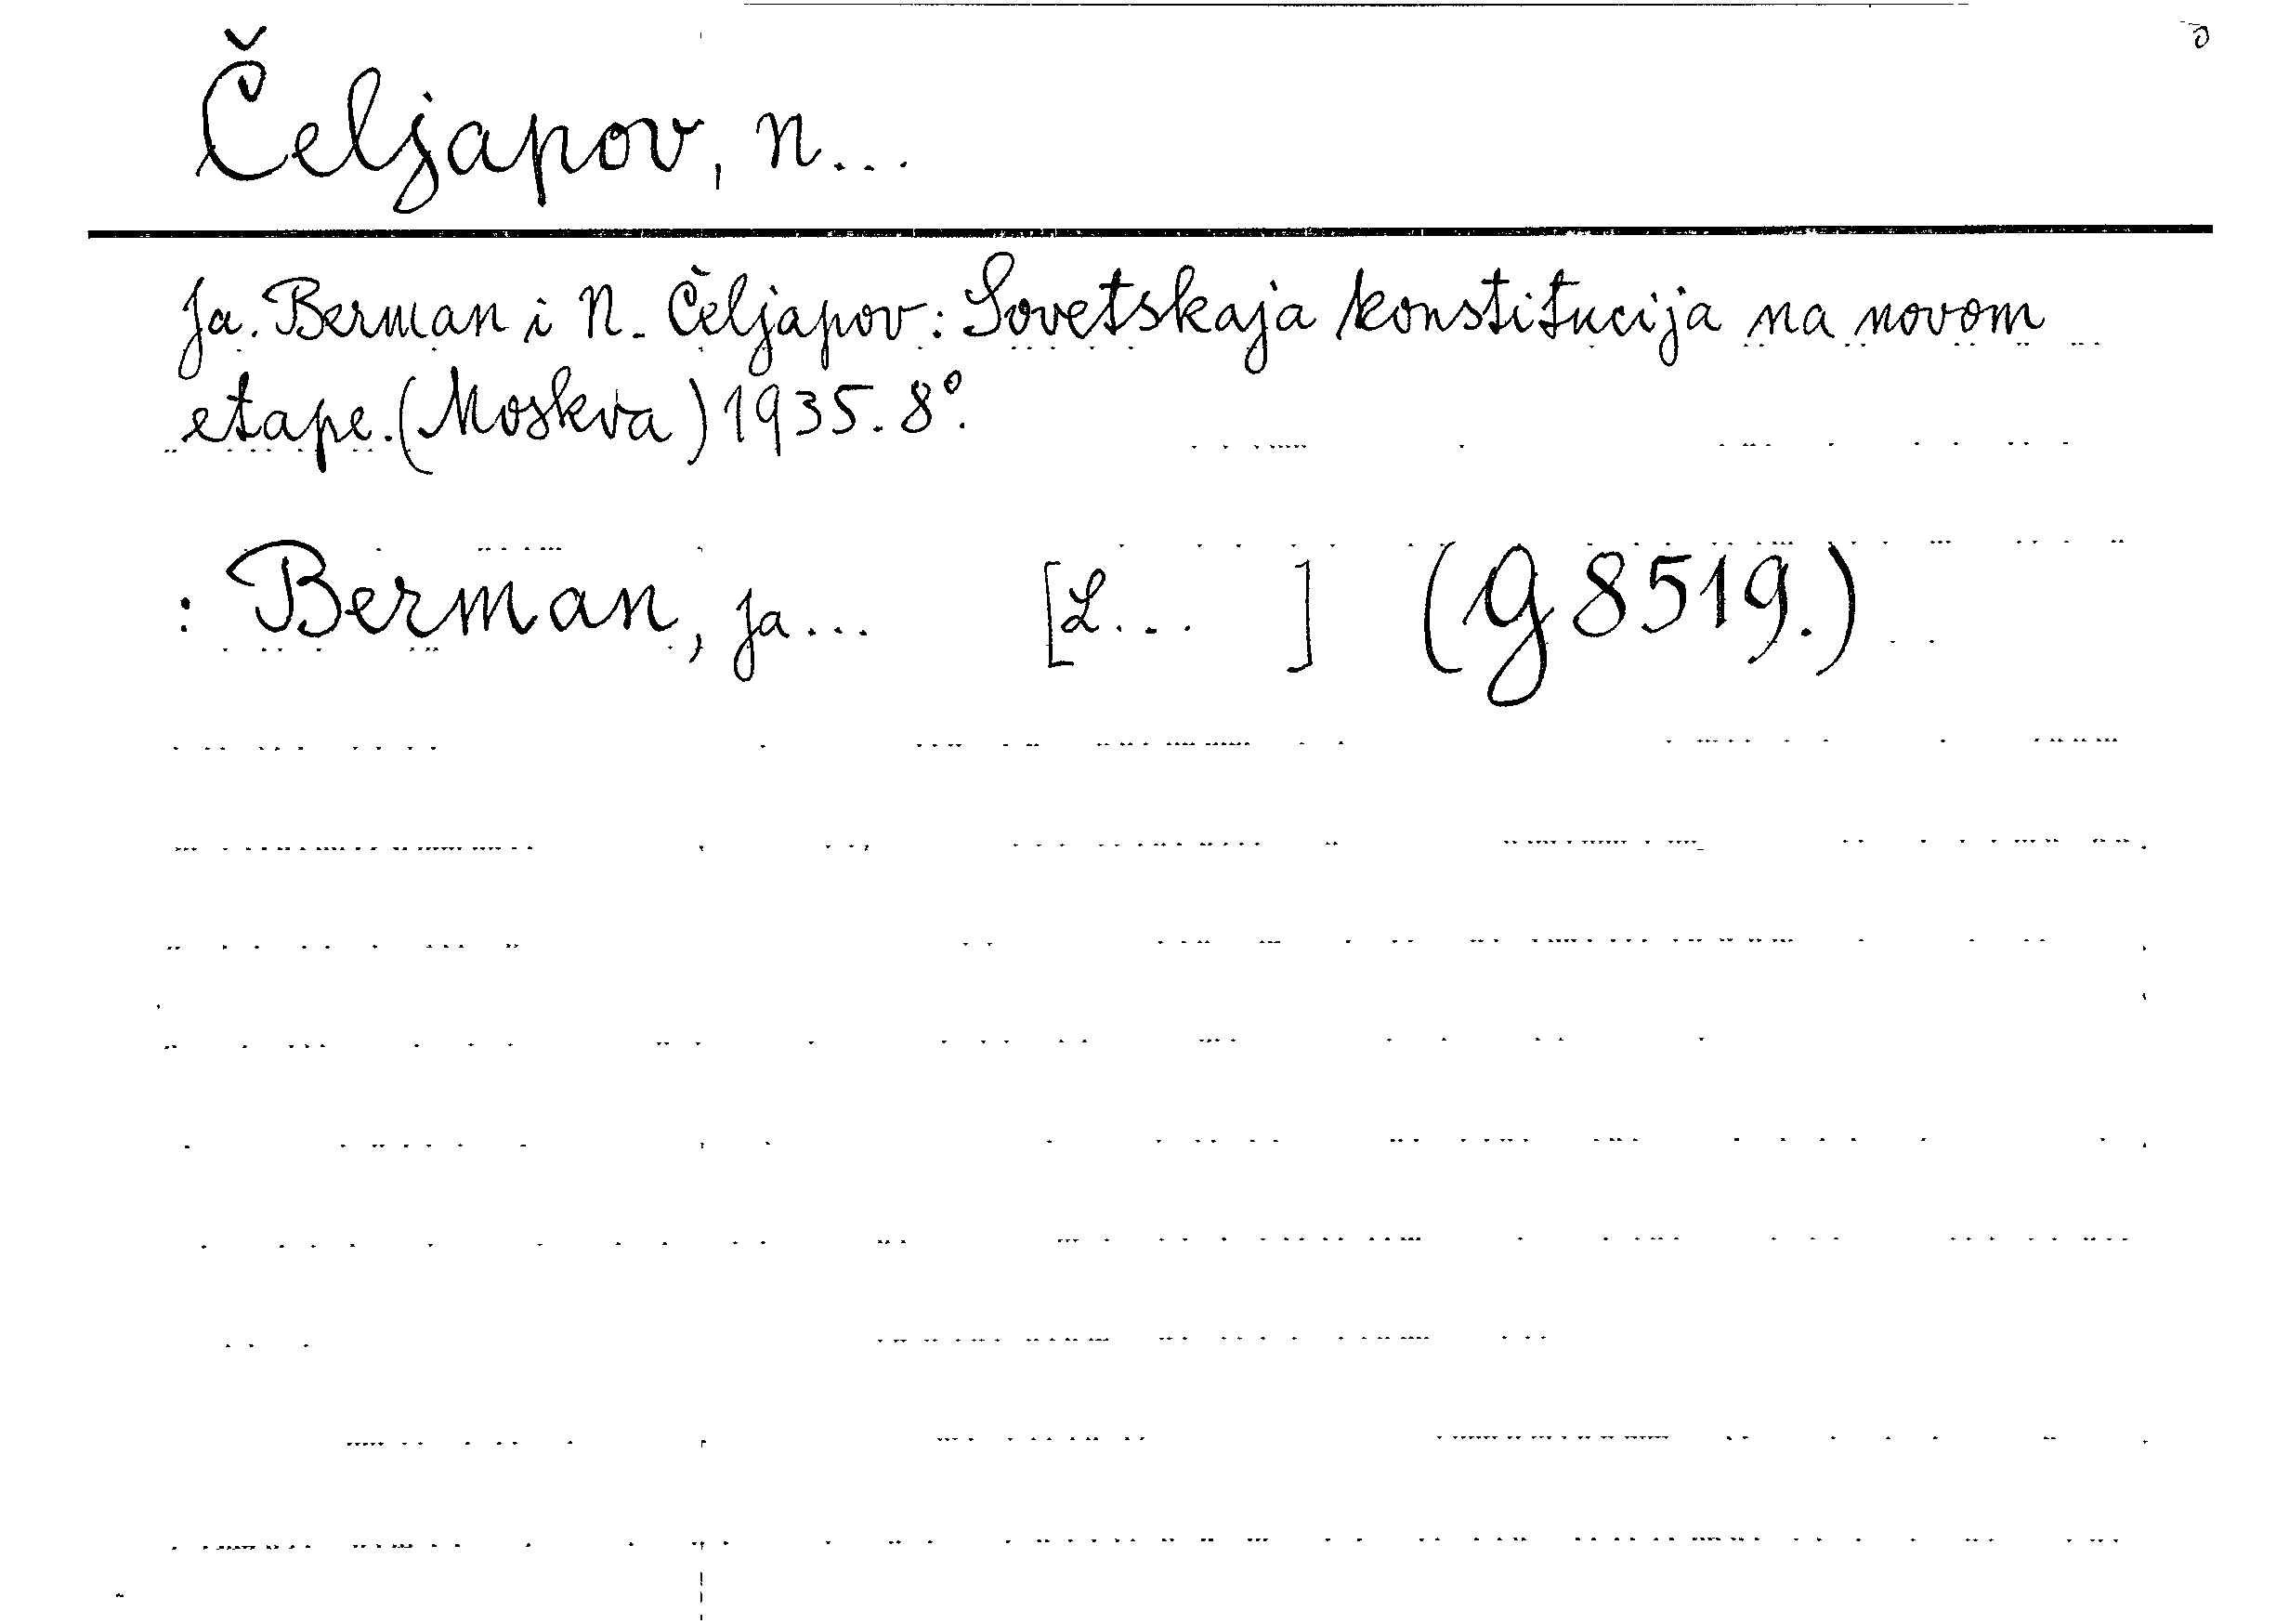 Čeljapov, N...
Ja. Berman i N. Čeljapov: Sovetskaja konstitucija na novom
etape. (Moskva) 1935. 8°.
: Berman, Ja... [L... ] (G 8519.)